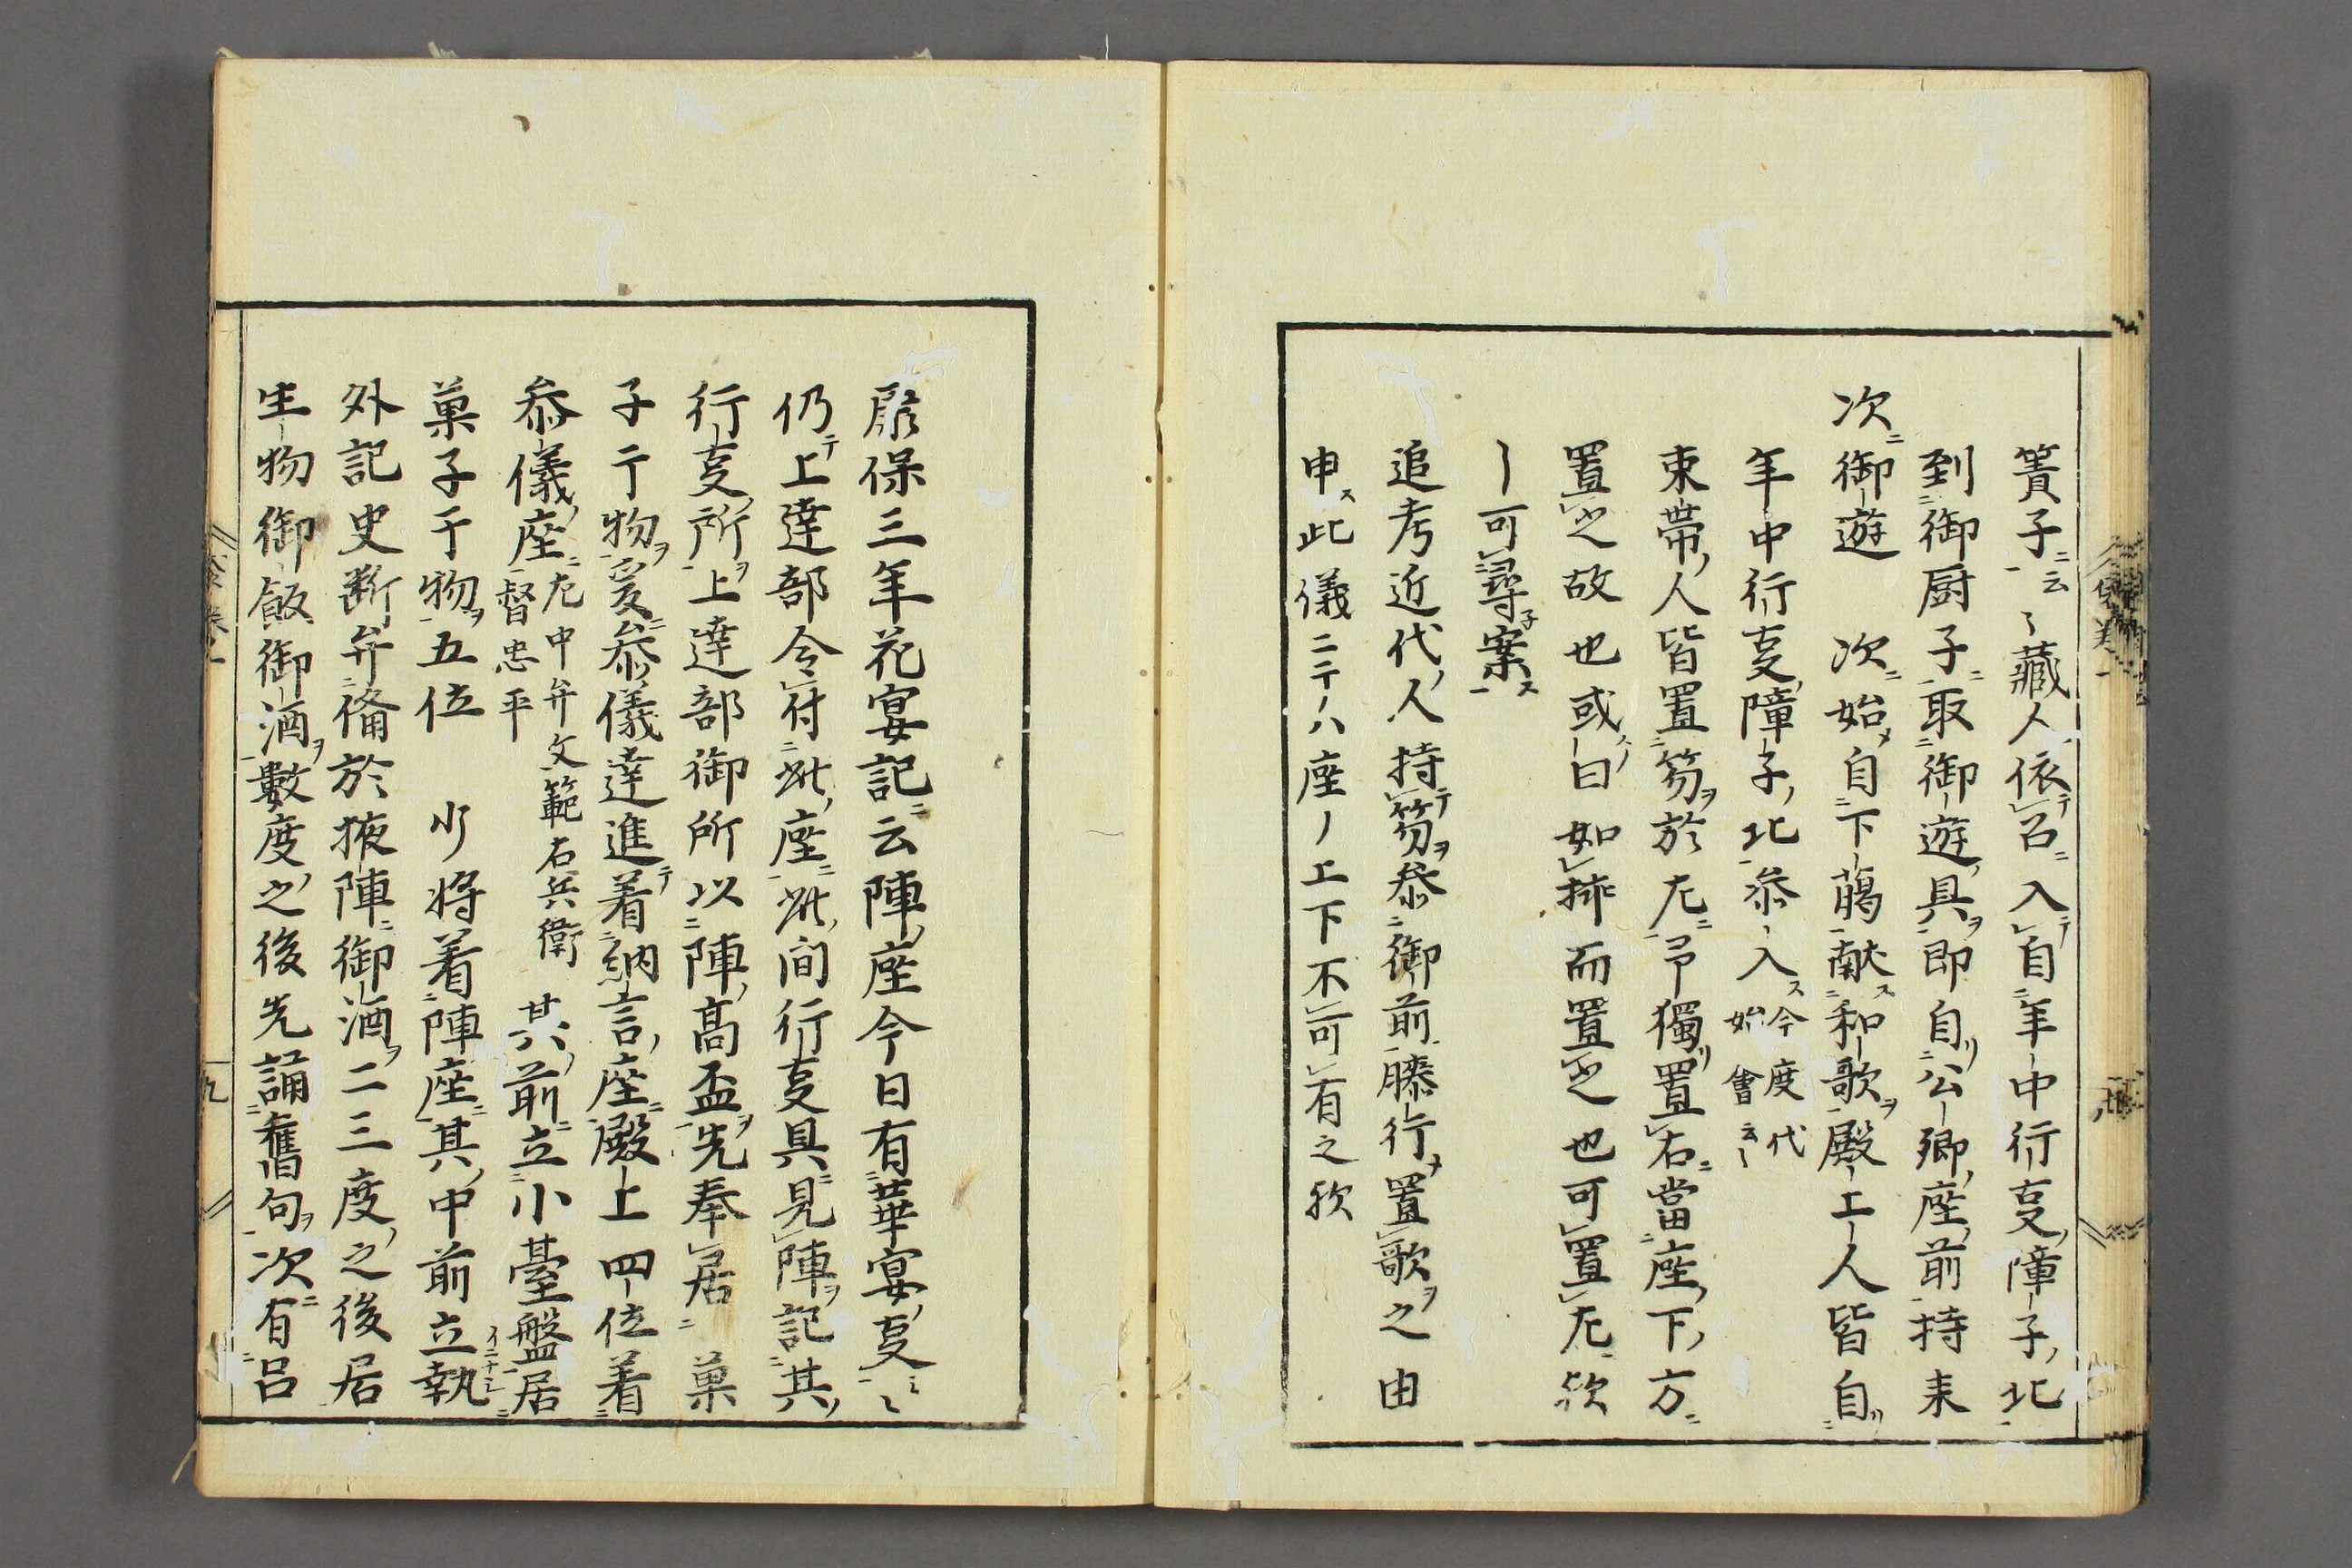 簀子ニ云〻藏人依テ召ニ入テ自年中行㕝障子ノ北
到御厨子ニ取御遊ノ具ヲ即自リ公卿ノ座ノ前持来
次ニ御遊　次ニ始メ自下﨟献ス和歌ヲ殿上人皆自リ
年中行㕝ノ障子ノ北参入ス今度代
始會云〻
束帶ノ人皆置笏ヲ於左ニ予獨リ置右ニ當座ノ下ノ方ニ
置之故也或ノ曰如挿而置之也可置左欤
可尋子案ス
追考近代ノ人持テ笏ヲ参御前膝行メ置歌ヲ之由
申ス此儀ニテハ座ノ上下不可有之欤
康保三年花宴記ニ云陣ノ座今日有華宴ノ㕝〻
仍テ上達部令付此ノ座ニ此ノ間行㕝具ニ見陣ノ記ヲ其ノ
行㕝ノ所ヲ上達部御所以陣ノ高盃ヲ先奉居ニ菓
子干物ヲ爰ニ参儀達進テ着納言ノ座ニ殿上四位着
参儀ノ座ニ左中弁文範右兵衛
督忠平
其ノ前ニ立小臺盤居
菓子干物ヲ五位　少将着陣座ニ其ノ中前立執
外記史断弁備於掖陣ニ御酒ヲ二三度ノ之後居
生物御飯御酒ヲ數度ノ之後先誦舊句ヲ次ニ有呂
九